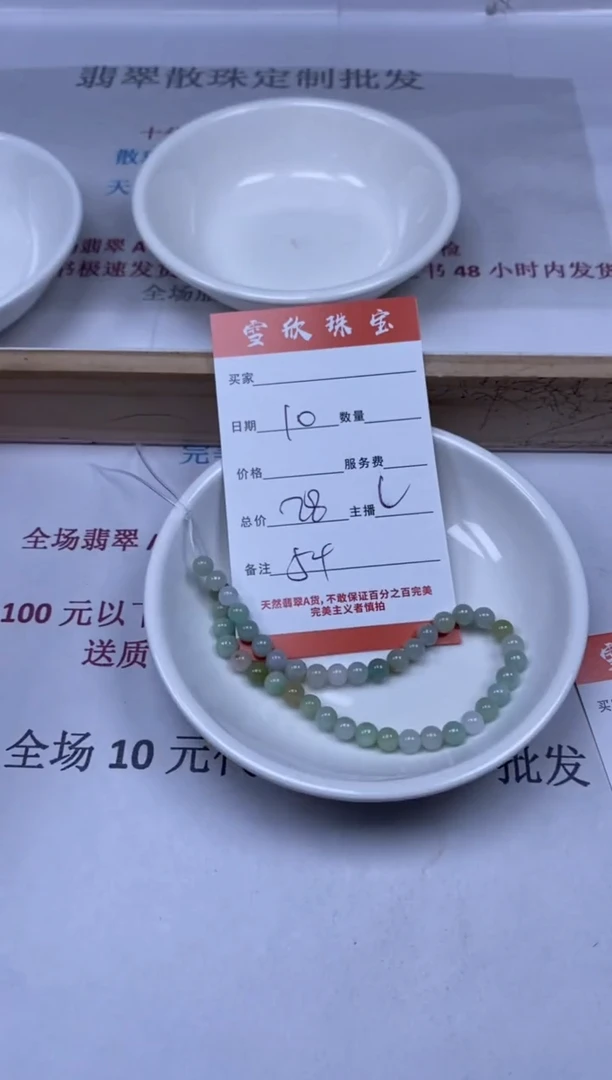 翡翠散珠定制批发
十
散
天
翡翠 A
检
书极速发货
书 48 小时内发货
全场
雪欣珠宝
买家
日期 10 数量
价格 服务费
总价 28 主播
备注 54
天然翡翠A货，不敢保证百分之百完美
完美主义者慎拍
元
全场翡翠
100 元以下
送质
全场 10 元
批发
雪
买